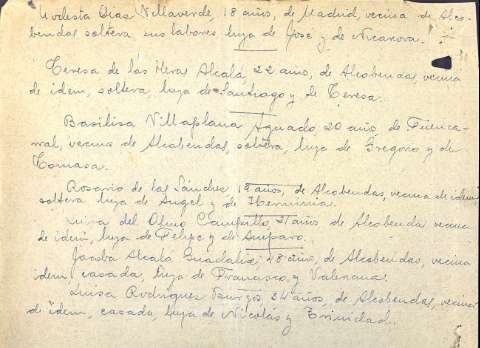 Díaz Villaverde, 18 años, de Madrid, vecina de Alco-
bendas soltera sus labores, hija de José y de Nicanora.
Teresa de las Heras Alcalá, 22 años, de Alcobendas, vecina
de idem, soltera, hija de Santiago y de Teresa.
Basilisa Villaplana Aguado, 20 años, de Fuenca-
rral, vecina de Alcobendas, soltera, hija de Gregorio y de
Tomasa.
Rosario de las Sánchez 18 años, de Alcobendas, vecina de idem
soltera hija de Angel y de Herminia.
del Olmo Campillo, 21 años de Alcobenda vecina
de idem, hija de Felipe y de Amparo.
Jacoba Alcalá Guadalix 48 años, de Alcobendas, vecina
idem casada, hija de Francisco y Valenciana.
Luisa Rodríguez 34 años, de Alcobendas, vecina
de idem, casada, hija de Nicolás y Trinidad.